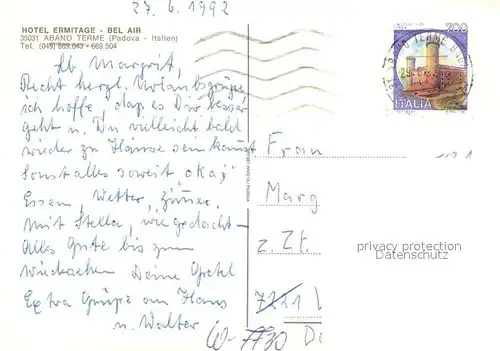 27.6.1992
HOTEL ERMITAGE - BEL AIR
35031 ABANO TERME (Padova - Italien)
Tel. (049) 669.043 - 669.504
Lb. Margrit,
Recht herzl. Urlaubsgrüße
ich hoffe, daß es Dir besser
geht u. Du vielleicht bald
wieder zu Hause sein kannst
Sonst alles soweit okay
Essen, Wetter, Zimmer.
Mit Stella, wie gedacht -
Alles Gute bis zum
Wiedersehen Deine Gretel
Extra Grüße an Hans
u. Walter
700
ABANO TERME
ITALIA
Frau
Marg
z. Zt.
7221
W-7730
privacy protection
Datenschutz